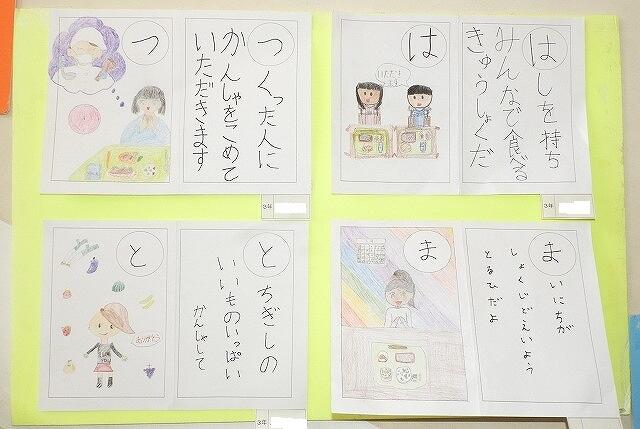 つくった人に
かんしゃをこめて
いただきます
つ
3年
はしを持ち
みんなで食べる
きゅうしょくだ
は
いただき
ます
3年
とちぎしの
いいものいっぱい
かんしゃして
と
ありがとう
3年
まいにちが
しょくじどえいよう
とるひだよ
ま